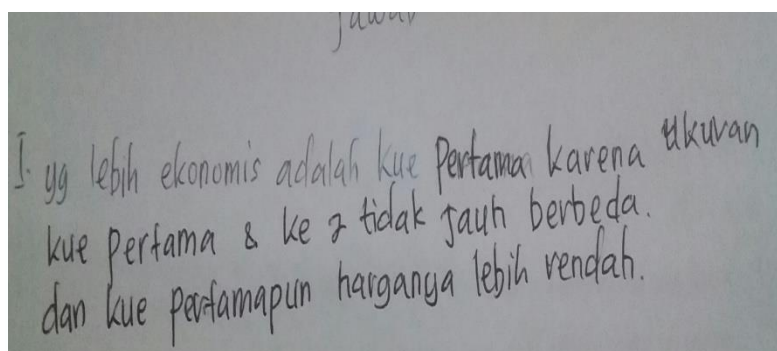 Jawab
1. yg lebih ekonomis adalah kue Pertama karena ukuran
kue pertama & ke 2 tidak jauh berbeda.
dan kue pertamapun harganya lebih rendah.